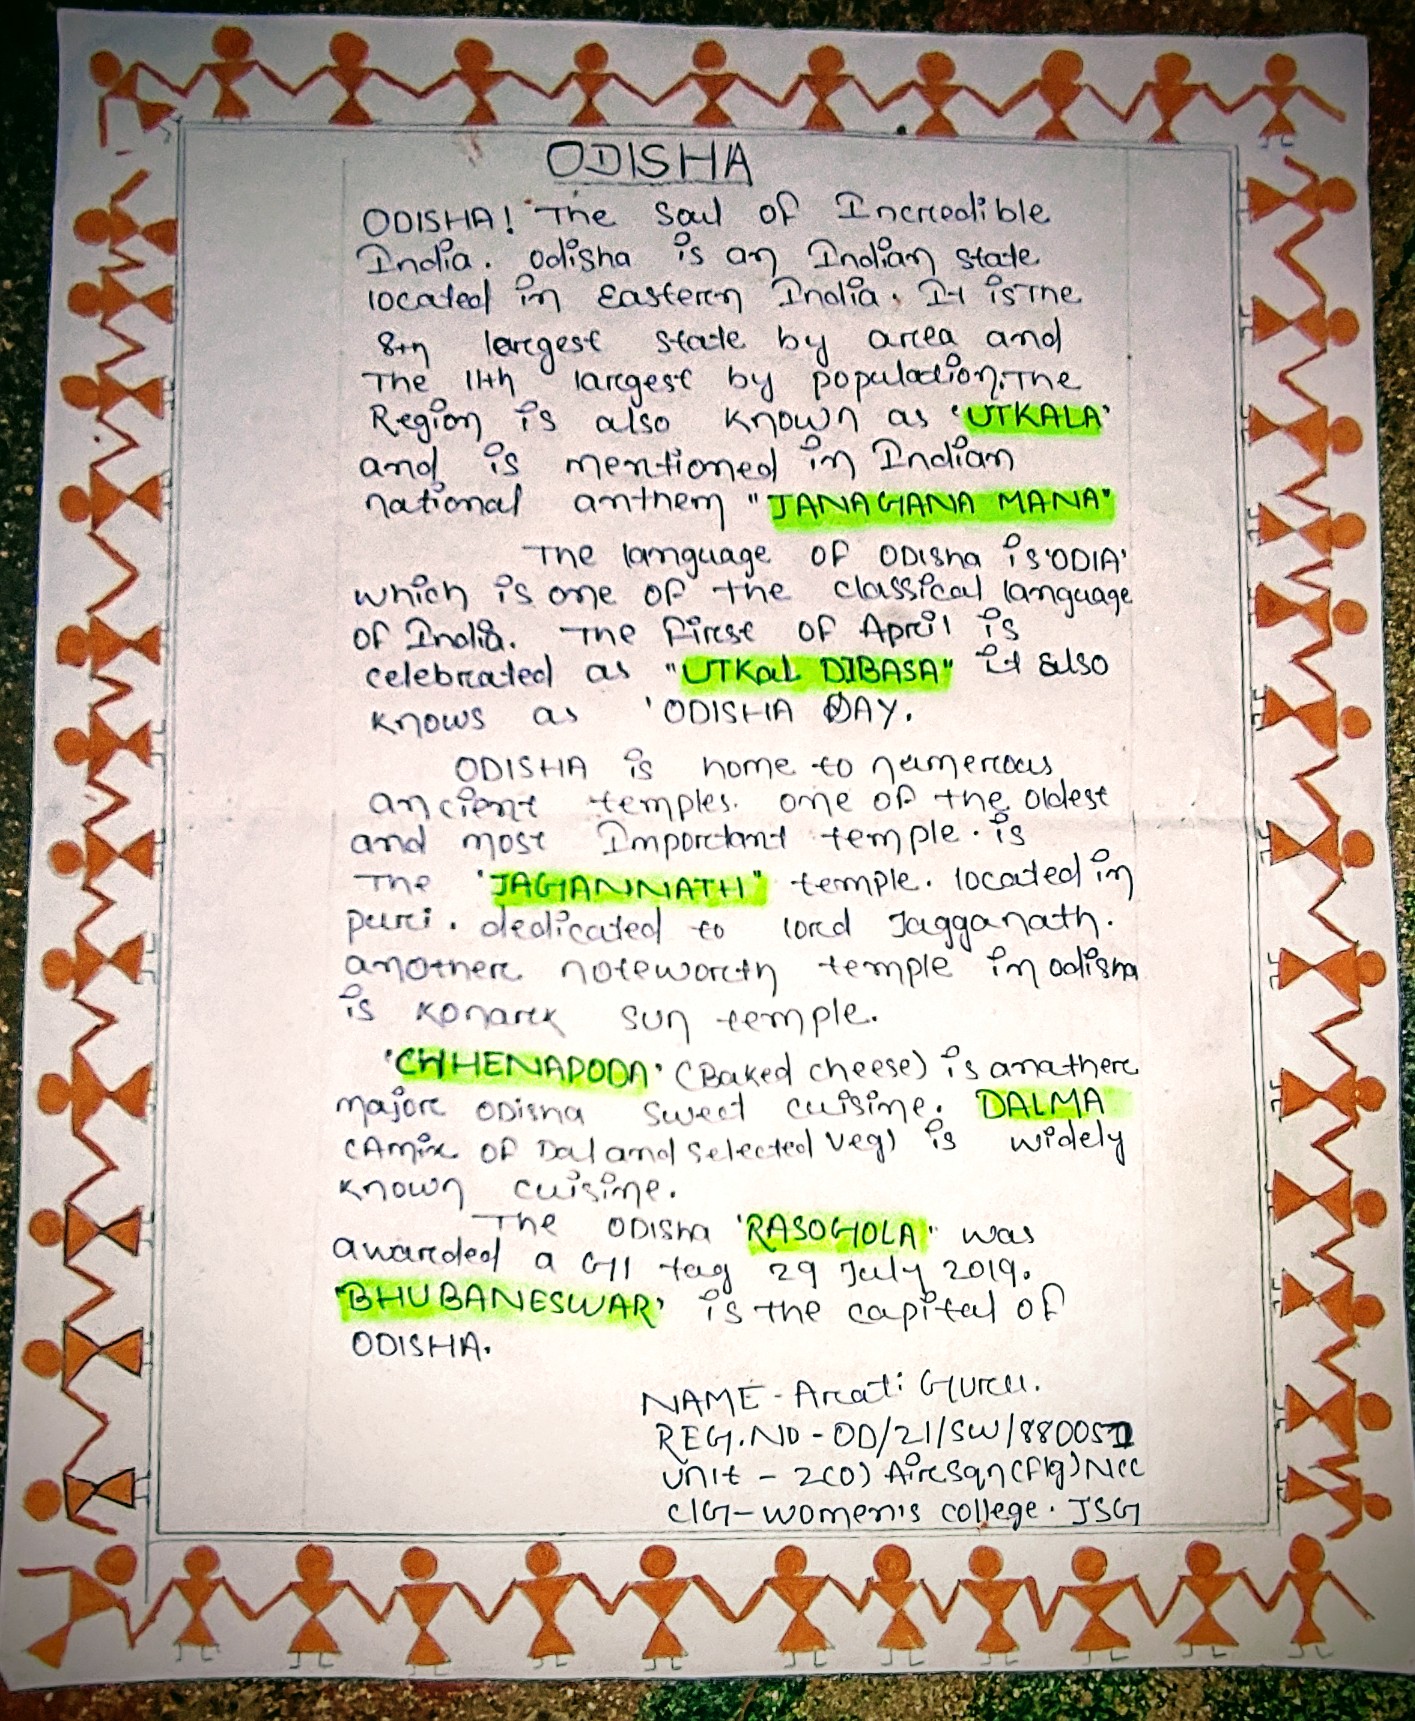 ODISHA
ODISHA! The Soul of Incredible
India. odisha is an Indian state
located in Eastern India. It is the
8th largest state by area and
The 11th largest by population. The
Region is also known as 'UTKALA'
and is mentioned in Indian
national anthem "JANAGANA MANA"
The language of ODisha is 'ODIA'
which is one of the classical language
of India. The first of April is
celebrated as "UTKal DIBASA" it also
knows as 'ODISHA DAY.
ODISHA is home to numerous
ancient temples. one of the oldest
and most Important temple. is
The 'JAGANNATH" temple. located in
puri. dedicated to lord Jagganath.
another noteworth temple in odisha
is Konark sun temple.
'CHHENAPODA' (Baked cheese) is anather
major ODisha sweet cuisine. DALMA
(Amix of Dal and selected veg) is widely
known cuisine.
The ODisha 'RASOGOLA" was
awarded a GI tag 29 July 2019.
'BHUBANESWAR' is the capital of
ODISHA.
NAME - Arati Guru.
REG.NO - OD/21/SW/880051
Unit - 2(O) Air Sqn (Flg) NCC
ClG - Women's college. JSG